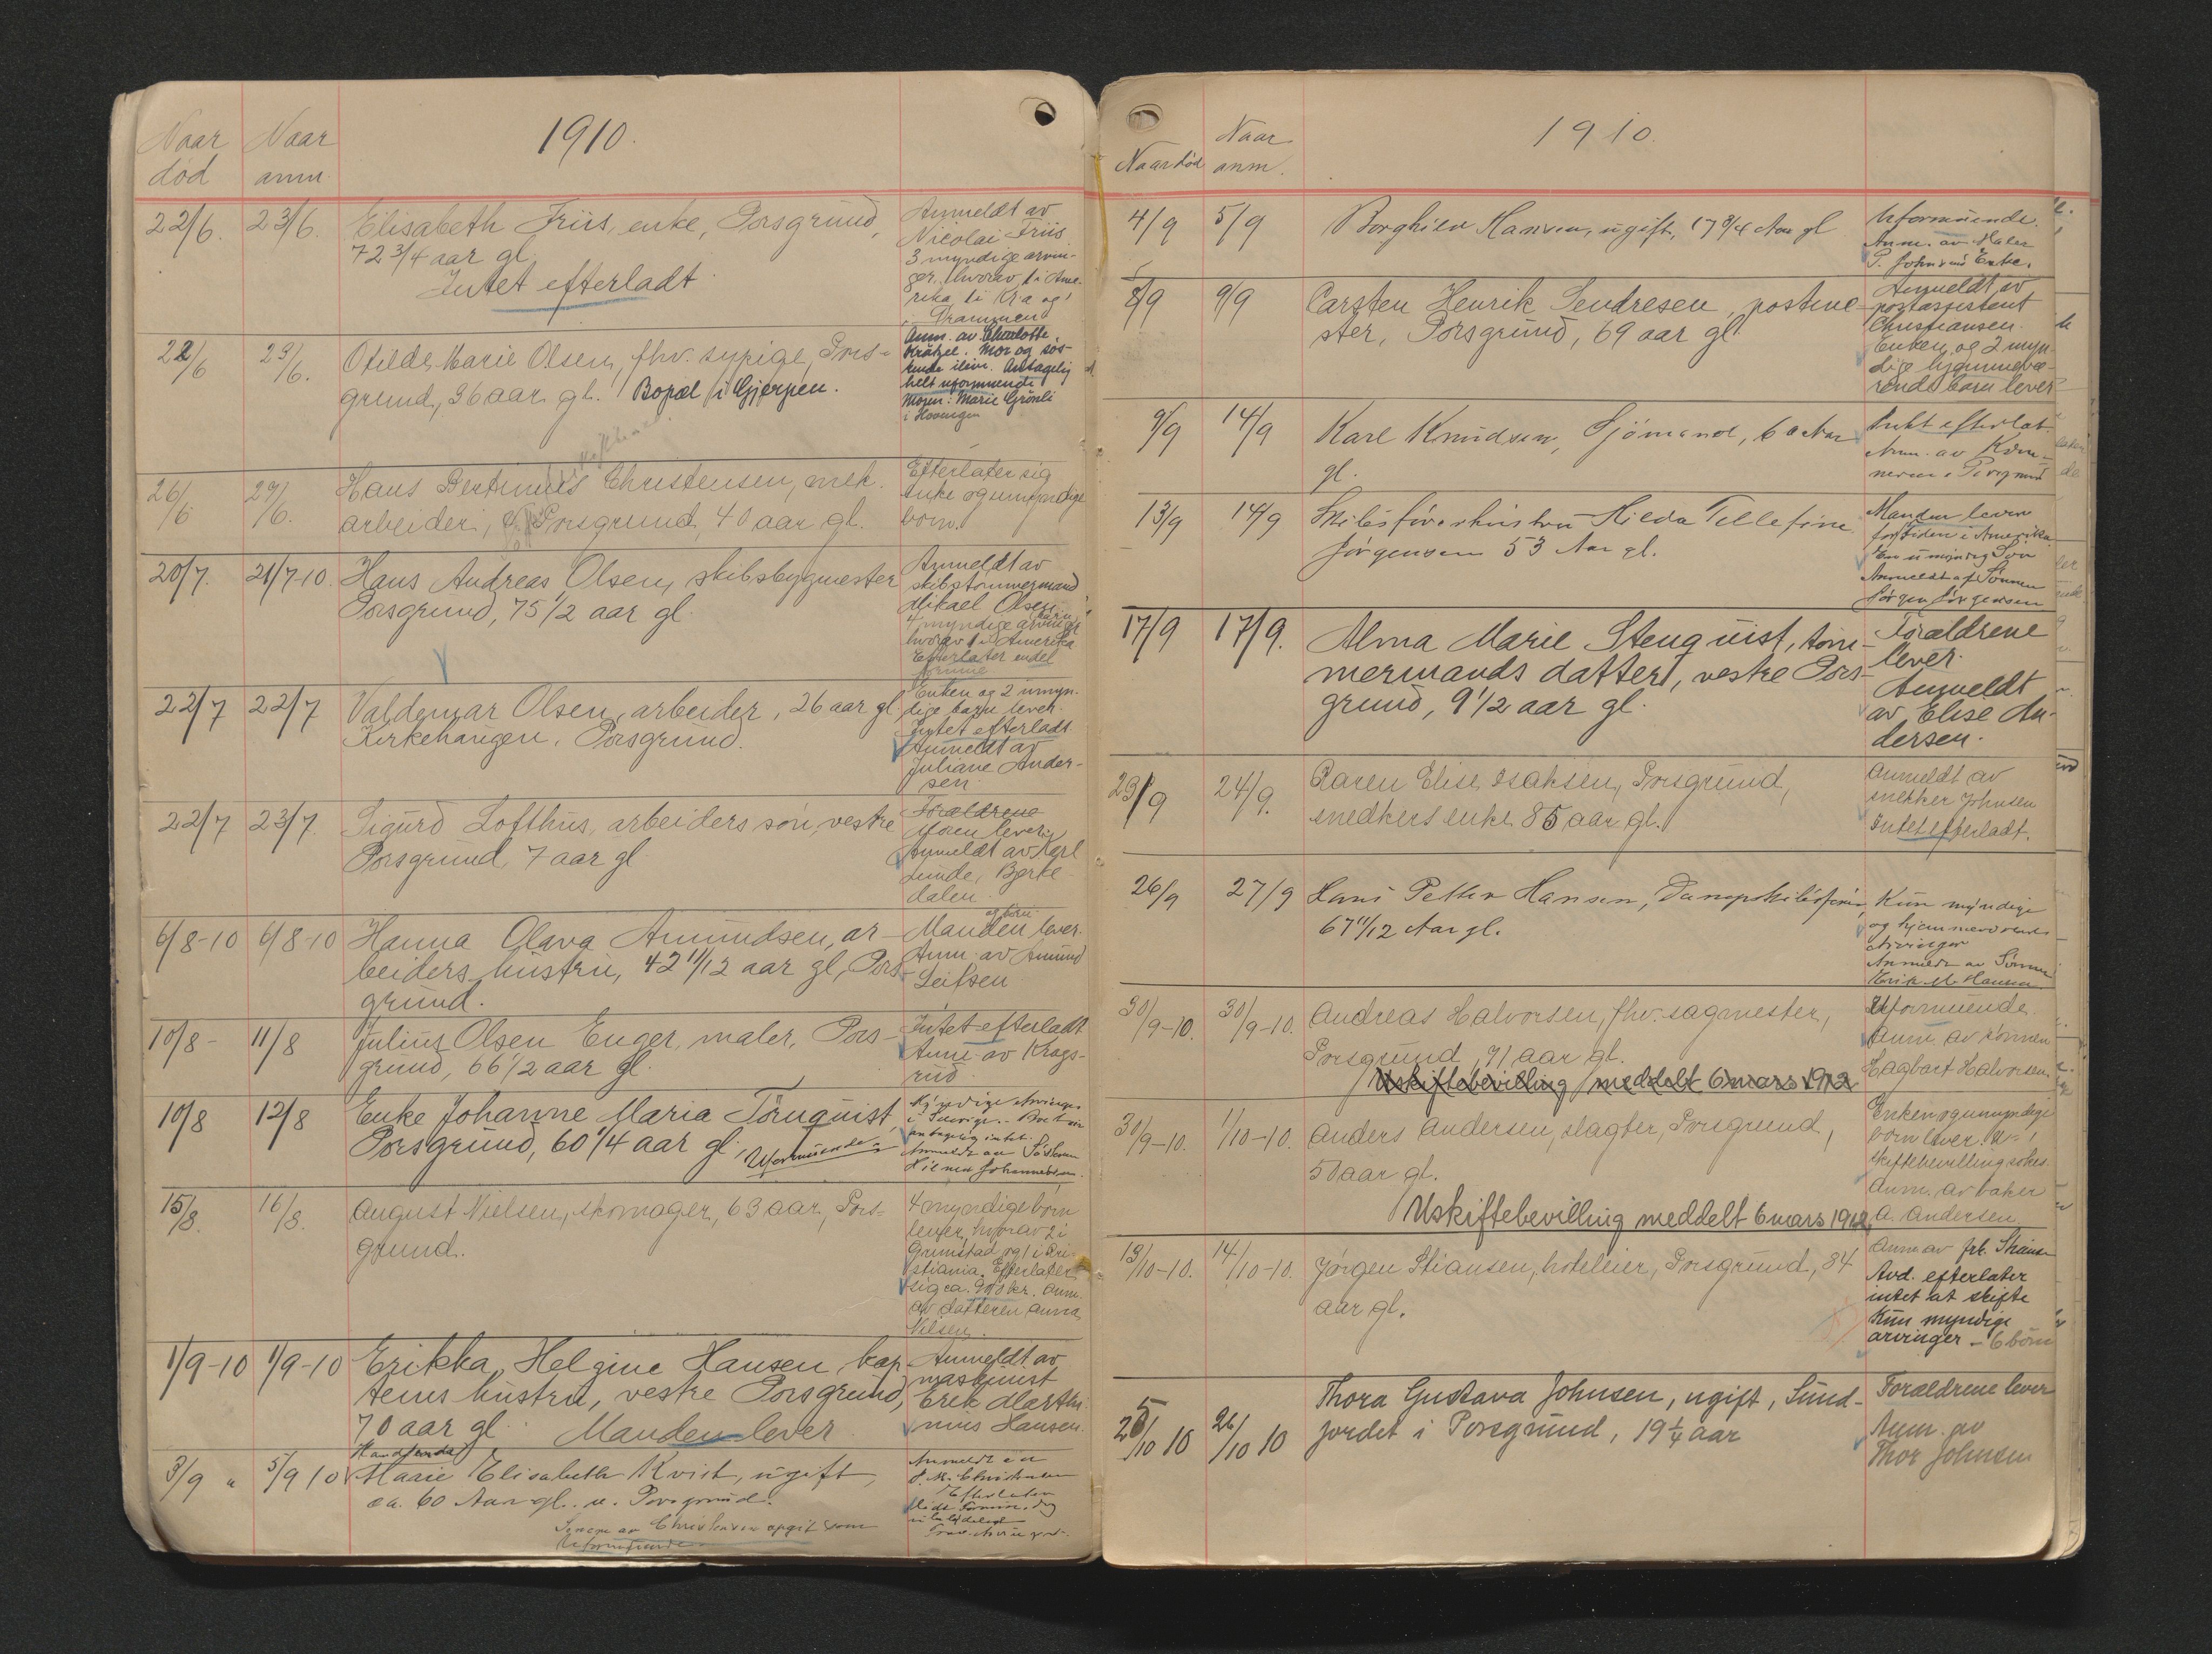 1910.
Naar død
Naar anm.
22/6. 23/6. Elisabeth Friis, enke, Porsgrund,
72 3/4 aar gl.
Intet efterladt
Anmeldt av
Nicolai Friis.
3 myndige arvin-
ger, hvorav 1 i Ame-
rika, 1 i Kra og 1
i Drammen
22/6 23/6. Otilde Marie Olsen, fhv. sypige, Pors-
grund, 36 aar gl. Bopæl i Gjerpen.
Anm. av Charlotte
Krätzel. Mor og søs-
kende ilive. Antagelig
helt uformuende
Moren: Marie Grönli
i
26/6 27/6. Hans Bertinius Christensen, mek.
arbeider, Porsgrund, 40 aar gl.
Efterlater sig
enke og umyndige
born.
20/7. 21/7-10. Hans Andreas Olsen, skibsbygmester
Porsgrund, 75 1/2 aar gl.
Anmeldt av
skibstømmermand
Mikael Olsen.
4 myndige arvinger
hvorav 1 i Amerika
Efterlater endel
formue
22/7 22/7 Valdemar Olsen, arbeider, 26 aar gl.
Kirkehaugen, Porsgrund.
Enken og 2 umyn-
dige barn lever.
Intet efterladt
Anmeldt av
Juliane Ander-
sen
22/7 23/7. Sigurd Lofthus, arbeiders søn, vestre
Porsgrund, 7 aar gl.
Forældrene
Moren lever.
Anmeldt av Karl
Lunde, Bjerke-
dalen.
6/8-10 6/8-10 Hanna Olava Amundsen, ar-
beiders hustru, 42 11/12 aar gl, Pors-
grund.
og børn
Manden lever.
Anm. av Amund
Leifsen
10/8- 11/8 Julius Olsen Enger, maler, Pors-
grund, 66 1/2 aar gl.
Intet efterladt
Anm. av Krogs-
rud
10/8 12/8 Enke Johanne Maria Törnquist,
Porsgrund, 60 1/4 aar gl. Uformuende
Myndige Arvinger
i Sverige.
antagelig intet.
Anmeldt av Søsteren
Hilma Johannessen.
15/8. 16/8. August Nielsen, skomager, 63 aar, Pors-
grund.
4 myndige børn
lever, hvorav 2 i
Grimstad og 1 i Kri-
stiania. Efterlater
sig ca. 900 kr. Anm.
av datteren Anna
Nilsen.
1/9-10 1/9-10 Erikka Helgine Hansen, kap-
teins hustru, vestre Porsgrund,
70 aar gl. Manden lever
Anmeldt av
maskinist
Erik Marthi-
nius Hansen.
3/9 " 5/9 10 Marie Elisabeth Kvist, ugift,
ca. 60 Aar gl. v. Porsgrund.
av Christensen opgit som
Uformuende
Anmeldt av
Efterlater
1910.
Naar død
Naar anm.
4/9 5/9 Borghild Hansen, ugift, 17 3/4 Aar gl
Uformuende.
Anm. av Maler
P. Johnsens Enke.
8/9 9/9 Carsten Henrik Sendresen, postme-
ster, Porsgrund, 69 aar gl.
Anmeldt av
postassistent
Christiansen.
Enken og 2 myn-
dige hjemmevæ-
rende barn lever
9/9 14/9 Karl Knudsen, Sjömand, 60 Aar
gl.
Intet efterlat
Anm. av Kæm-
neren i Porsgrund
13/9 14/9 Skibsförerhustru Hilda Tellefine
Jörgensen 53 Aar gl.
Manden lever
for Tiden i Amerika
En umyndig Søn
Anmeldt af Sønnen
Jørgen Jørgensen
17/9 17/9. Alma Marie Stenquist, töm-
mermands datter, vestre Pors-
grund, 9 1/2 aar gl.
Forældrene
lever.
Anmeldt
av Elise An-
dersen.
23/9 24/9. Karen Elise Isaksen, Porsgrund,
snedkers enke 85 aar gl.
Anmeldt av
snekker Johnsen
Intet efterladt.
26/9 27/9 Hans Petter Hansen, Dampskibsförer,
67 11/12 Aar gl.
Kun myndige
og hjemmeværende
Arvinger
Anmeldt av Sønnen
Erik M. Hansen
30/9-10. 30/9-10. Andreas Halvorsen, fhv. sagmester,
Porsgrund, 71 aar gl.
Uskiftebevilling meddelt 6 mars 1912
Uformuende.
Anm. av sønnen
Hagbart Halvorsen.
30/9-10. 1/10-10. Anders Andersen, slagter, Porsgrund,
50 aar gl.
Uskiftebevilling meddelt 6 mars 1912.
Enken og umyndige
børn lever.
skiftebevilling søkes.
Anm. av baker
A. Andersen
13/10-10. 14/10-10. Jörgen Stiansen, hoteleier, Porsgrund, 84
aar gl.
Anm av frk. Stiansen
Avd. efterlater
intet at skifte
Kun myndige
arvinger - 6 börn
25/10 10 26/10 10 Thora Gustava Johnsen, ugift, Sund-
jordet i Porsgrund, 19 1/4 aar
Forældrene lever
Anm. av
Thor Johnsen